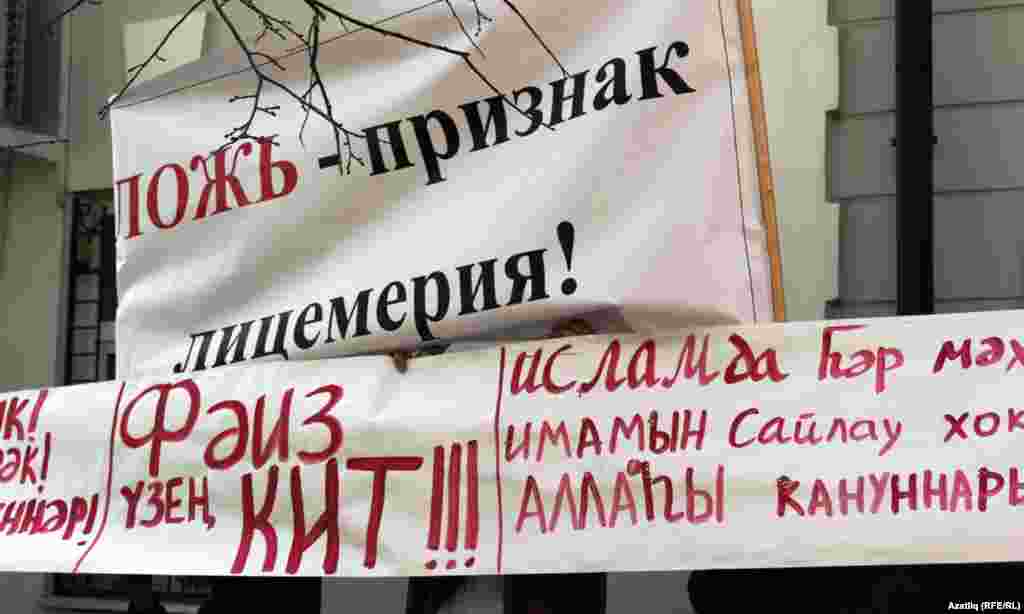 ЛОЖЬ - признак
лицемерия!
Фәиз
үзең
КИТ!!!
ИСЛАМда һәр мәх
имамын Сайлау хок
АЛЛАҺЫ кануннары
Azatliq (RFE/RL)